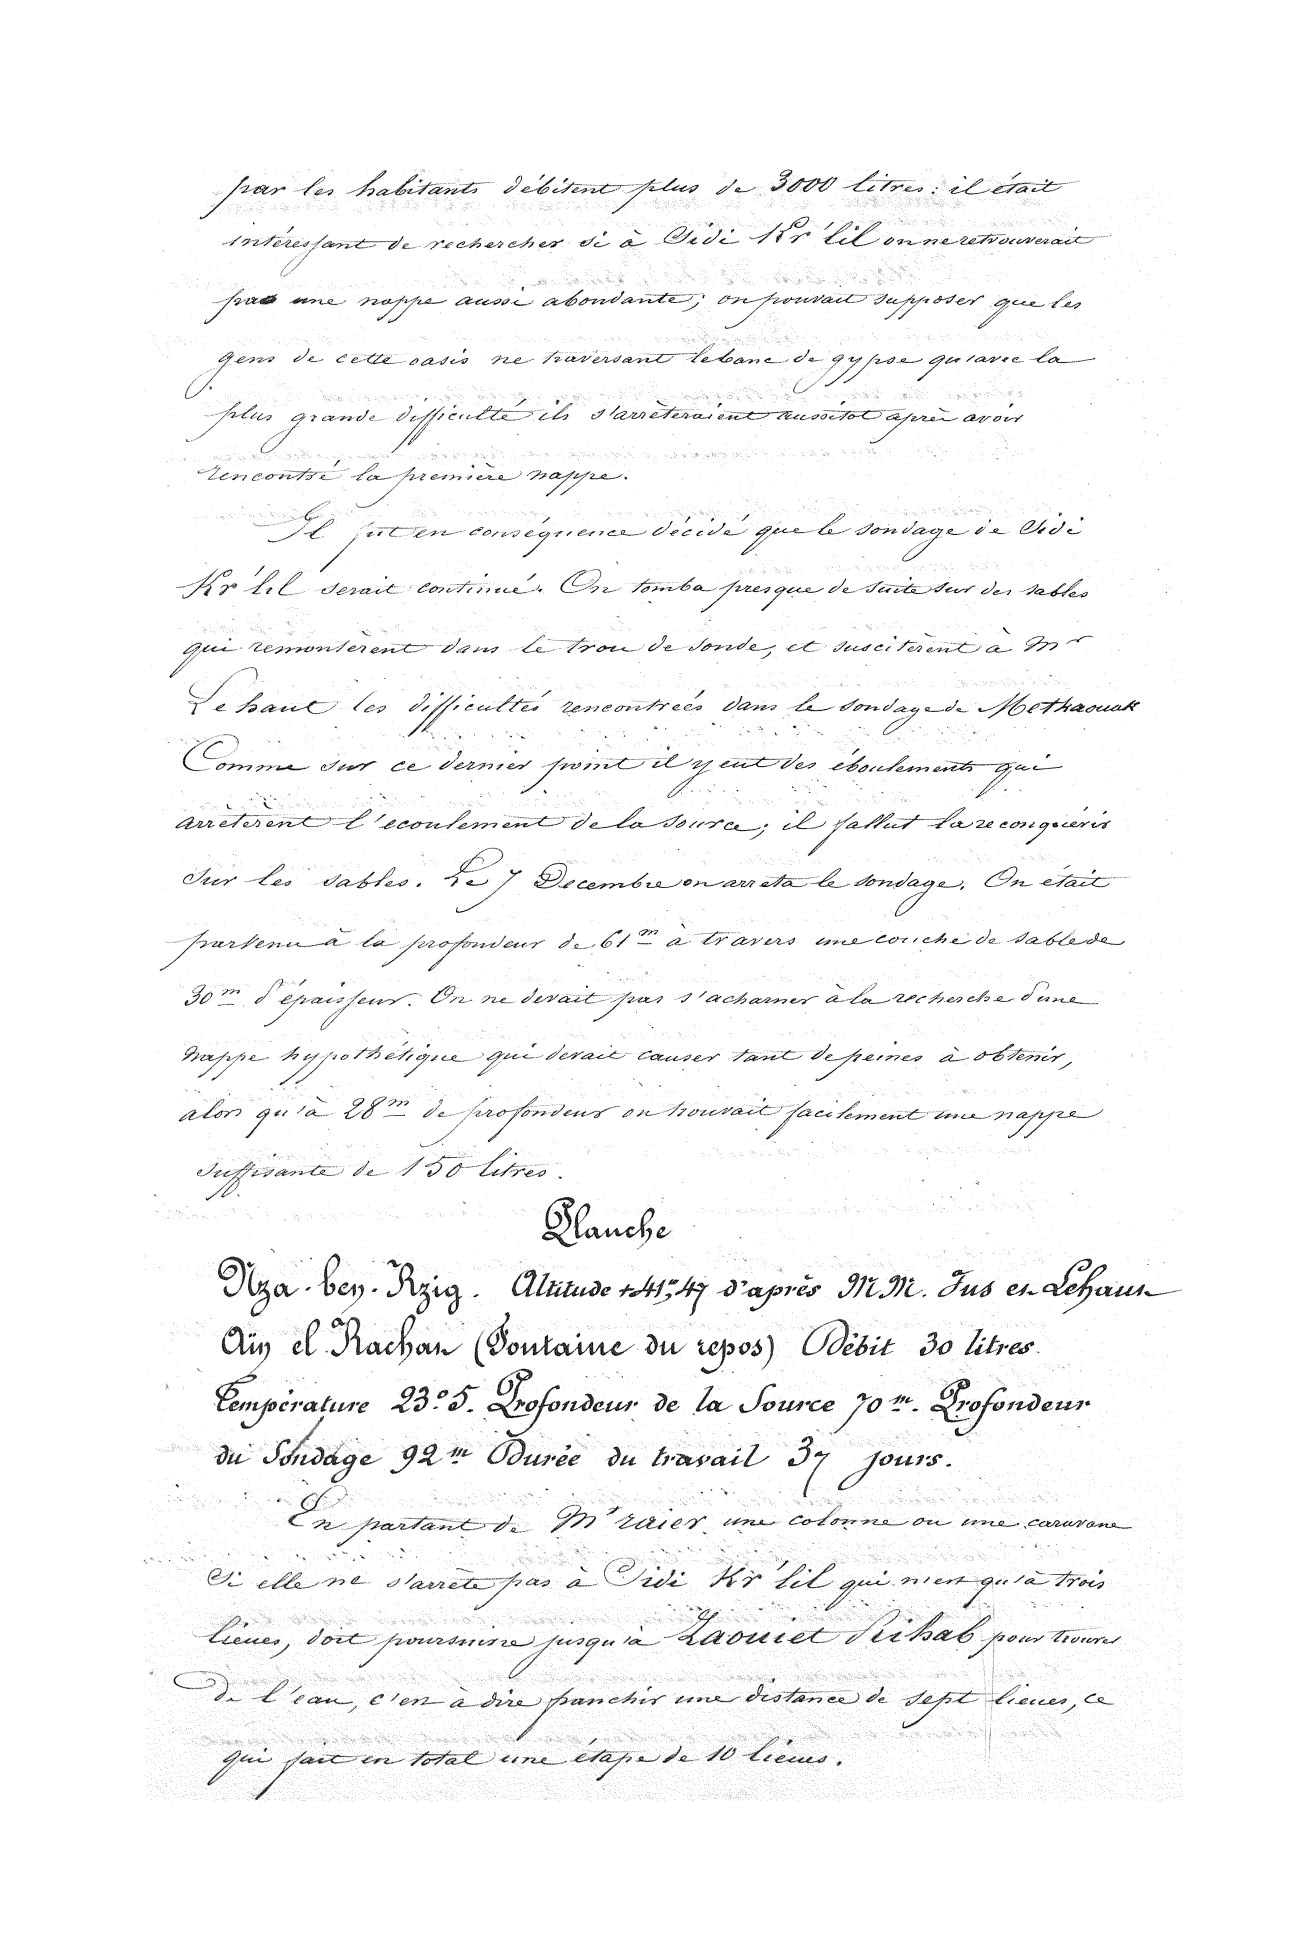 par les habitants débitent plus de 3000 litres: il était
intéressant de rechercher si à Sidi Kr'lil on ne retrouverait
pas une nappe aussi abondante; on pouvait supposer que les
gens de cette oasis ne traversant le banc de gypse qu'avec la
plus grande difficulté ils s'arrêteraient aussitot après avoir
rencontré la première nappe.
Il fut en conséquence décidé que le sondage de Sidi
Kr'lil serait continué. On tomba presque de suite sur des sables
qui remontèrent dans le trou de sonde, et suscitèrent à Mr
Lehaut les difficultés rencontrées dans le sondage de Methaouak
Comme sur ce dernier point il y eut des éboulements qui
arrêtèrent l'ecoulement de la source; il fallut la reconquérir
sur les sables. Le 7 Decembre on arreta le sondage. On était
parvenu à la profondeur de 61m à travers une couche de sable de
30m d'épaisseur. On ne devait pas s'acharner à la recherche d'une
nappe hypothétique qui devait causer tant de peines à obtenir,
alors qu'à 28m de profondeur on trouvait facilement une nappe
suffisante de 150 litres.
Planche
Nza-ben-Rzig. Altitude +41m,47 d'après MM. Jus et Lehaut
Aïn el Rachan (Fontaine du repos) Débit 30 litres.
Température 23°5. Profondeur de la Source 70m. Profondeur
du Sondage 92m Durée du travail 37 jours.
En partant de M'raïer une colonne ou une caravane
si elle ne s'arrête pas à Sidi Kr'lil qui n'est qu'à trois
lieues, doit poursuivre jusqu'à Zaouiet Rihab pour trouver
de l'eau, c'est à dire franchir une distance de sept lieues, ce
qui fait en total une étape de 10 lieues.